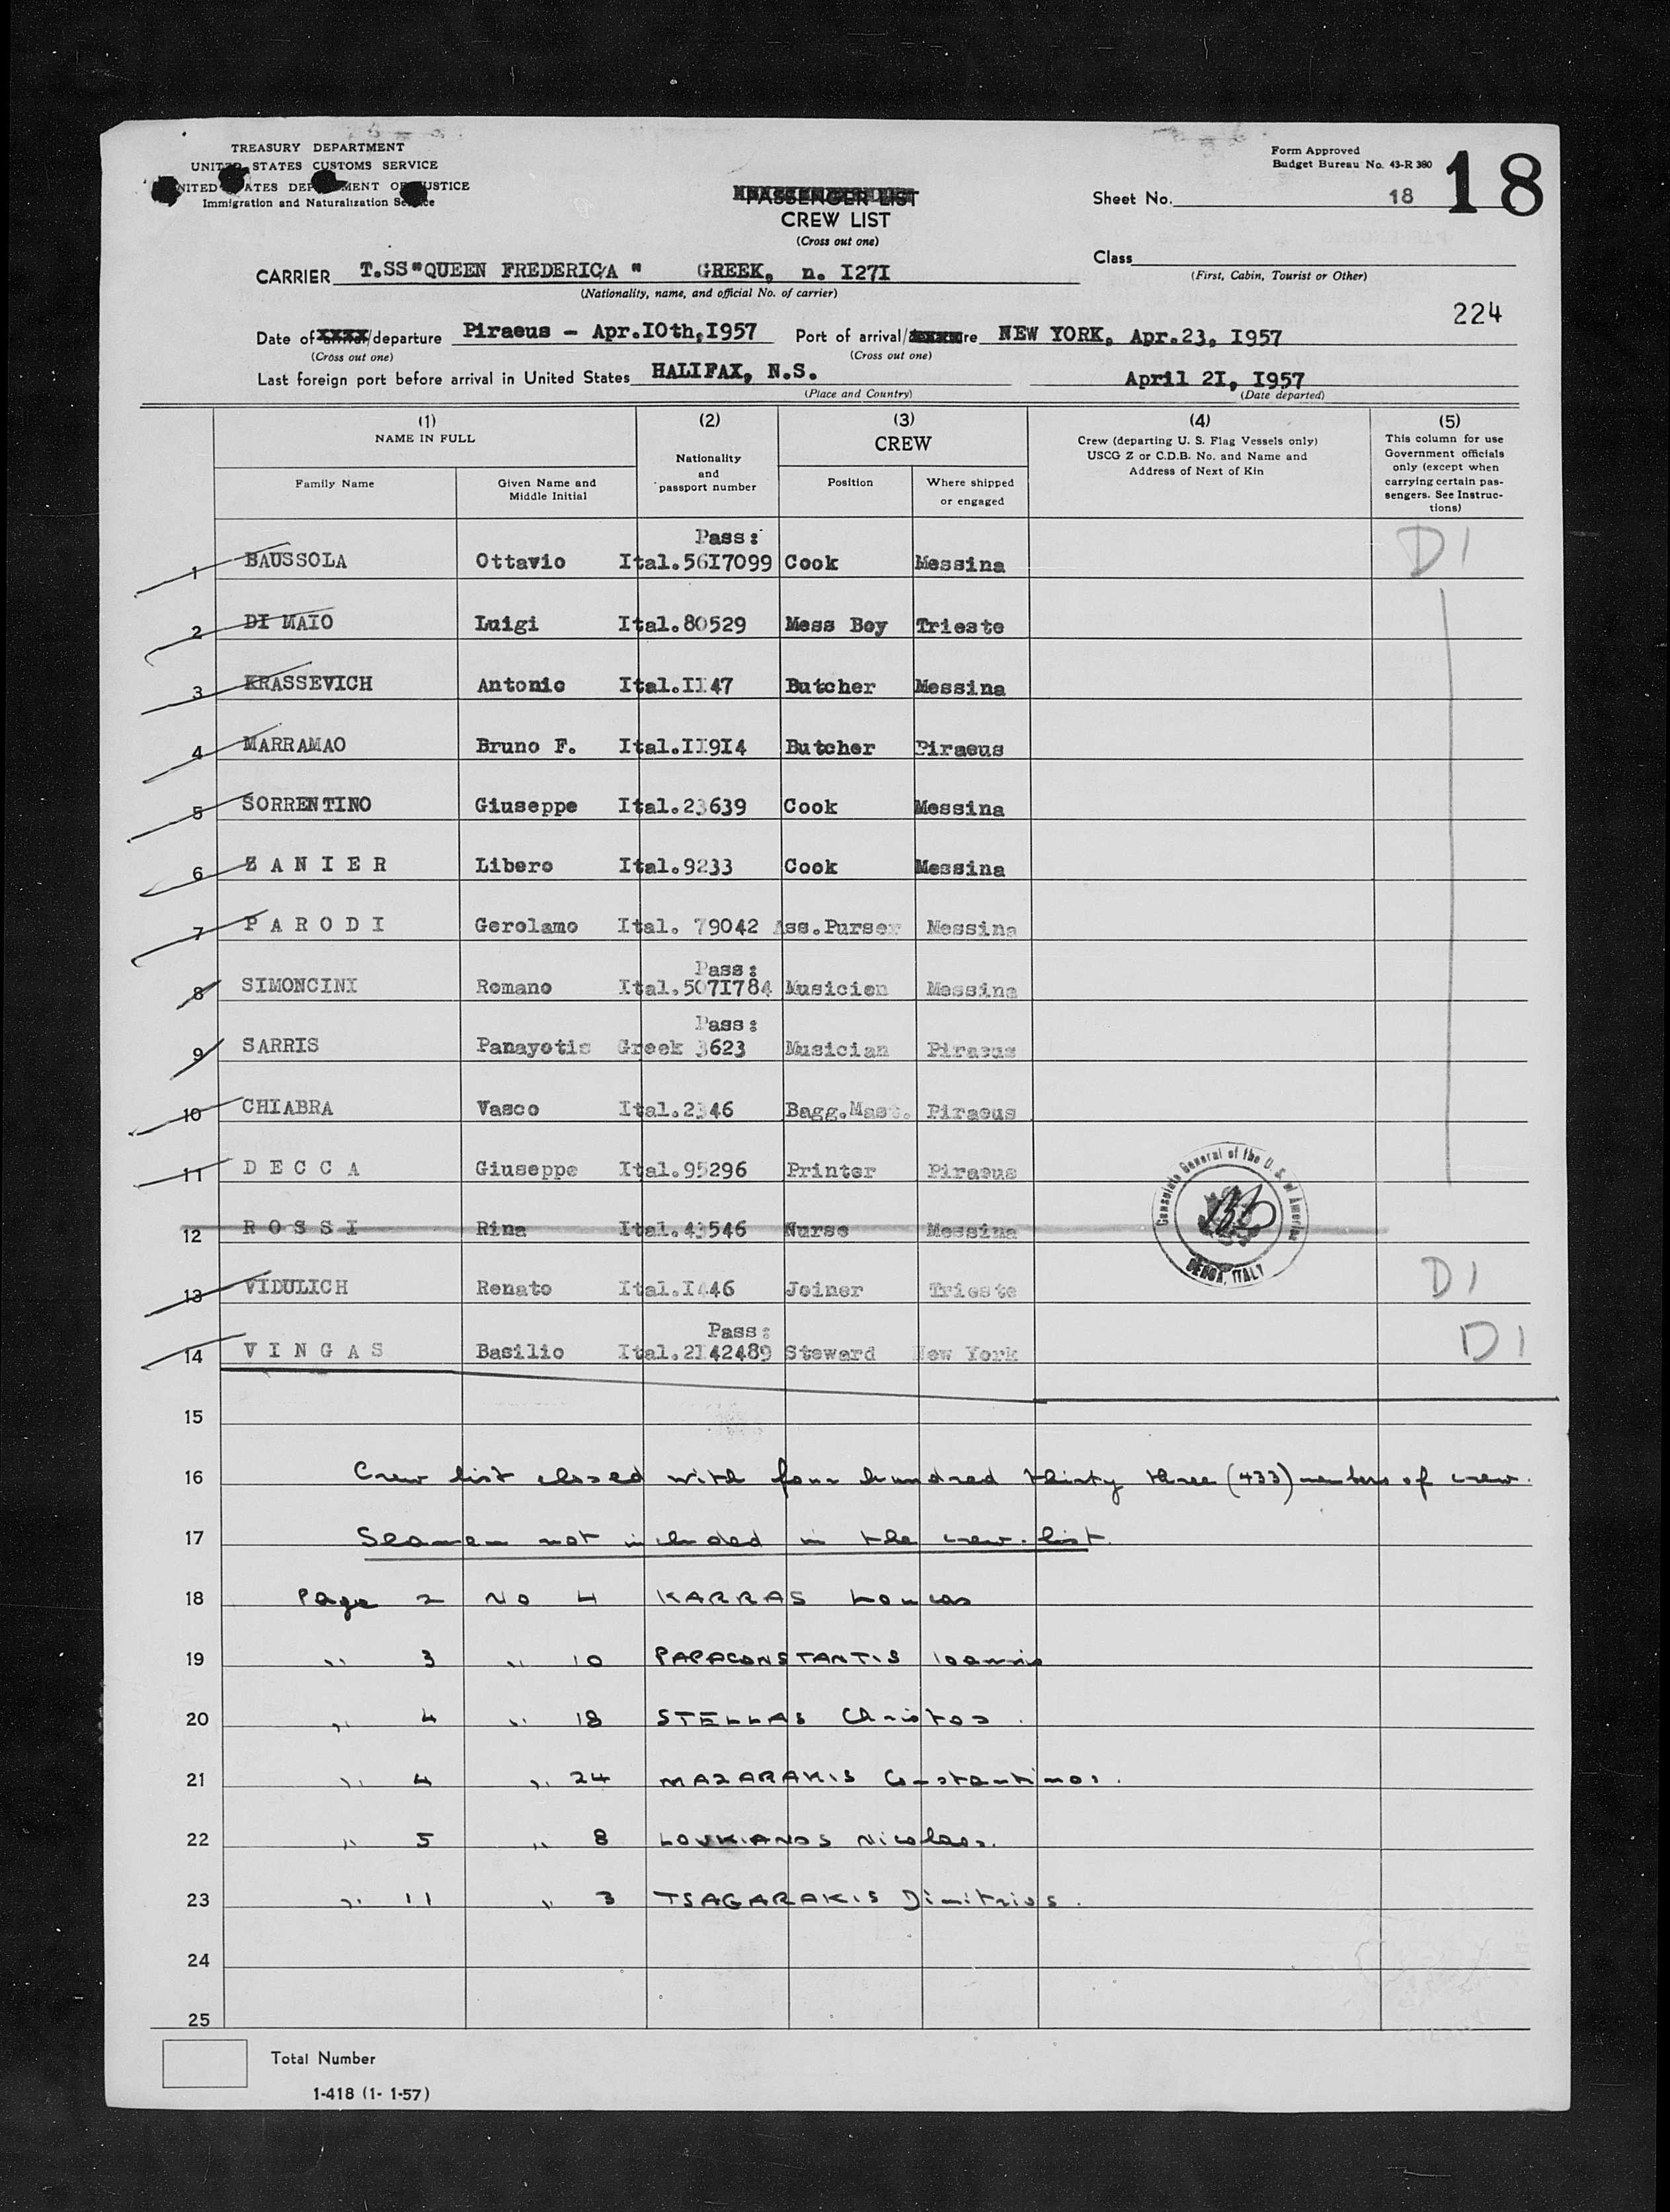 TREASURY DEPARTMENT
UNITED STATES CUSTOMS SERVICE
UNITED STATES DEPARTMENT OF JUSTICE
Immigration and Naturalization Service
Form Approved
Budget Bureau No. 43-R 380
18
PASSENGER LIST
CREW LIST
(Cross out one)
Sheet No. 18
Class
(First, Cabin, Tourist or Other)
CARRIER T.SS"QUEEN FREDERICA " GREEK, n. I27I
(Nationality, name, and official No. of carrier)
224
Date of /departure Piraeus - Apr.IOth,I957 Port of arrival/ NEW YORK, Apr.23, I957
(Cross out one) (Cross out one)
Last foreign port before arrival in United States HALIFAX, N.S. April 2I, I957
(Place and Country) (Date departed)
(1) (2) (3) (4) (5)
NAME IN FULL
Family Name
Given Name and Middle Initial
Nationality and passport number
CREW
Position
Where shipped or engaged
Crew (departing U. S. Flag Vessels only)
USCG Z or C.D.B. No. and Name and
Address of Next of Kin
This column for use
Government officials
only (except when
carrying certain pas-
sengers. See Instruc-
tions)
Pass:
1 BAUSSOLA Ottavio Ital.56I7099 Cook Messina D1
2 DI MAIO Luigi Ital.80529 Mess Boy Trieste
3 KRASSEVICH Antonio Ital.II47 Butcher Messina
4 MARRAMAO Bruno F. Ital.II9I4 Butcher Piraeus
5 SORRENTINO Giuseppe Ital.23639 Cook Messina
6 Z A N I E R Libero Ital.9233 Cook Messina
7 P A R O D I Gerolamo Ital. 79042 Ass.Purser Messina
Pass:
8 SIMONCINI Romano Ital.507I784 Musicien Messina
Pass:
9 SARRIS Panayotis Greek 3623 Musician Piraeus
10 CHIABRA Vasco Ital.2346 Bagg.Mast. Piraeus
11 D E C C A Giuseppe Ital.95296 Printer Piraeus
12 R O S S I Rina Ital.43546 Nurse Messina
Consulate General of the U. S. of America
GENOA, ITALY
13 VIDULICH Renato Ital.I446 Joiner Trieste D1
Pass:
14 V I N G A S Basilio Ital.2I42489 Steward New York D1
15
16 Crew list closed with four hundred thirty three (433) members of crew.
17 Seamen not included in the crew list.
18 Page 2 No 4 KARRAS Loucas
19 " 3 " 10 PAPACONSTANTIS Ioannis
20 " 4 " 18 STELLAS Christos.
21 " 4 " 24 MAZARAKIS Constantinos.
22 " 5 " 8 LOUKIANOS Nicolaos.
23 " 11 " 3 TSAGARAKIS Dimitrios.
24
25
Total Number
1-418 (1- 1-57)